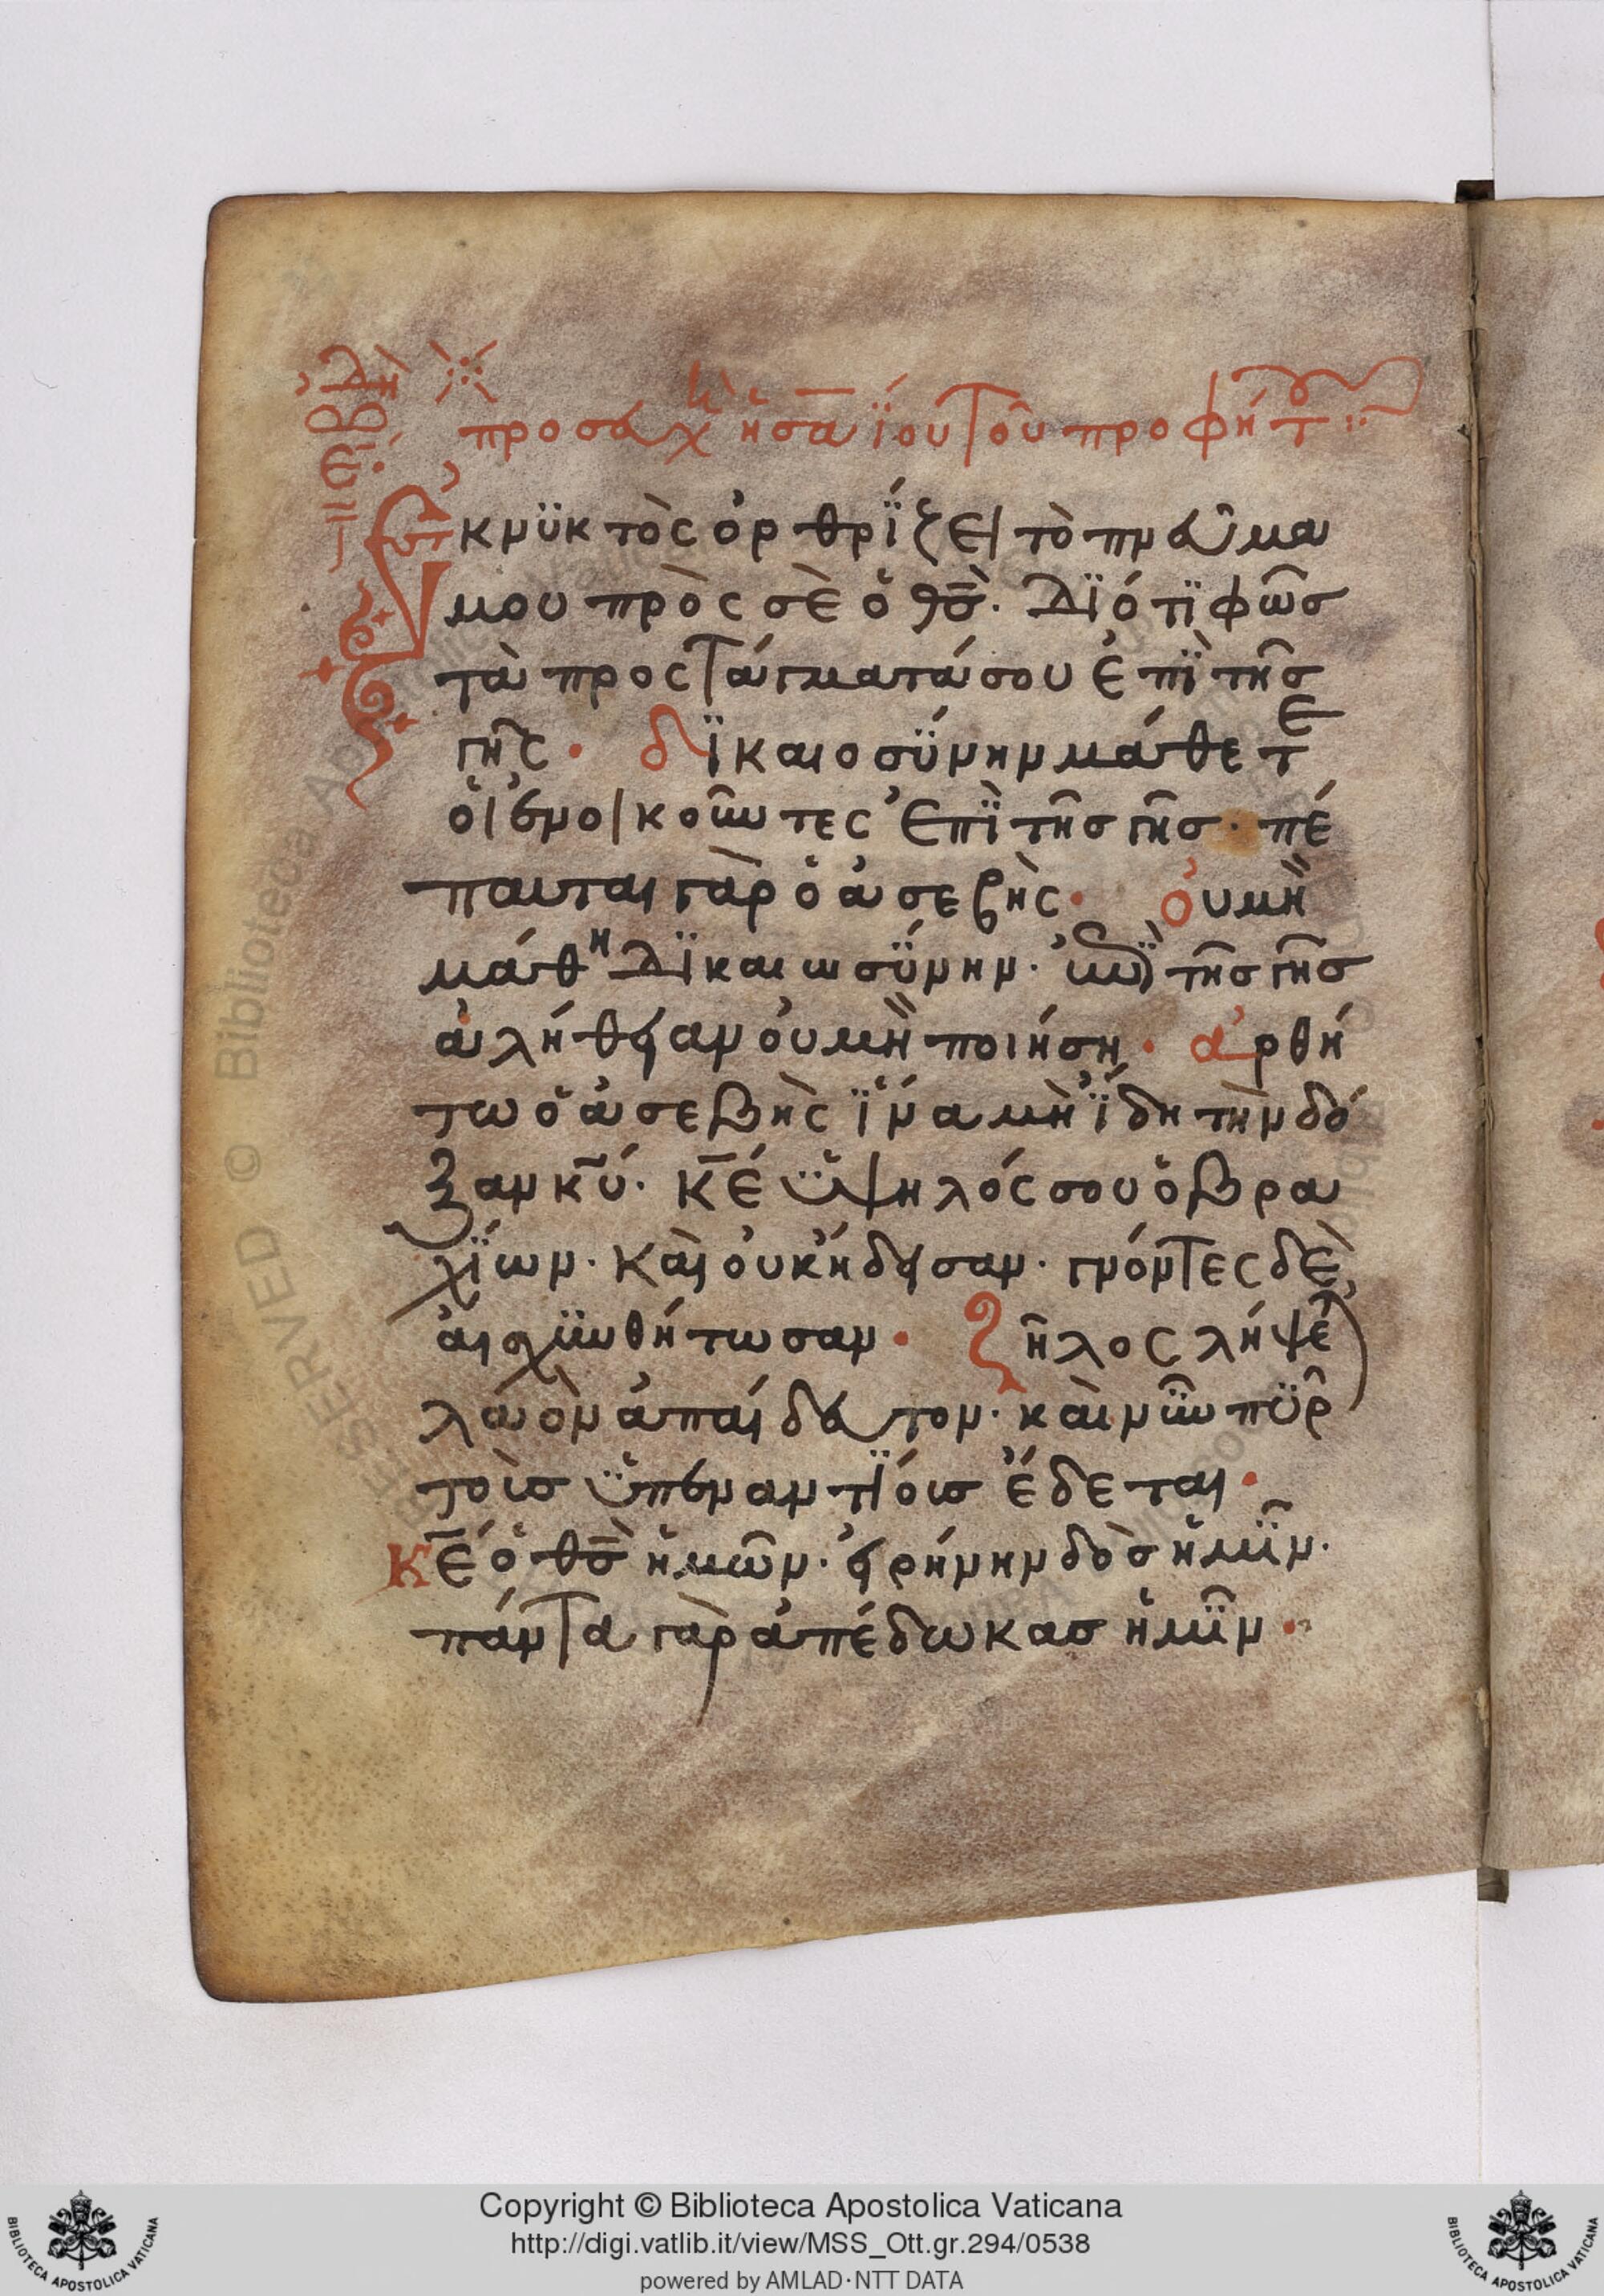 ὠδὴ
προσευχὴ ἡσαΐου τοῦ προφήτ
Ἐκ νϋκτὸς ὀρθρίζει τὸ πνεῦμα
μου πρὸς σὲ ὁ θς̄. Διότϊ φῶσ
τὰ προστάγματά σου ἐπῒ τῆσ
γῆς · δϊκαιοσύνην μάθετε
οἱ ἐνοικοῦντες ἐπῒ τῆσ γῆσ · πέ
παυται γὰρ ὁ ἀσεβὴς · οὐ μὴ
μάθη Δϊκαιωσύνην · ἐπῒ τῆσ γῆσ
ἀλήθειαν οὐ μὴ ποιήση · ἀρθή
τω ὁ ἀσεβὴς ἵνα μὴ ἴδη τὴν δό
ξαν κῡ. κ̄ε ὑψηλός σου ὁ βρα
χίων · καὶ οὐκ ἤδεισαν · γνόντες δὲ
αἰσχυνθήτωσαν · ζῆλος λήψε
λαὸν ἀπαίδευτον · καὶ νῦν πῦρ
τοὺσ ὑπεναντίουσ ἔδεται ·
κ̄ε ὁ θς̄ ἡμῶν · εἰρήνην δὸσ ἡμῖν ·
πάντα γὰρ ἀπέδωκασ ἡμῖν ·
Copyright © Biblioteca Apostolica Vaticana
http://digi.vatlib.it/view/MSS_Ott.gr.294/0538
powered by AMLAD·NTT DATA
BIBLIOTECA APOSTOLICA VATICANA
BIBLIOTECA APOSTOLICA VATICANA